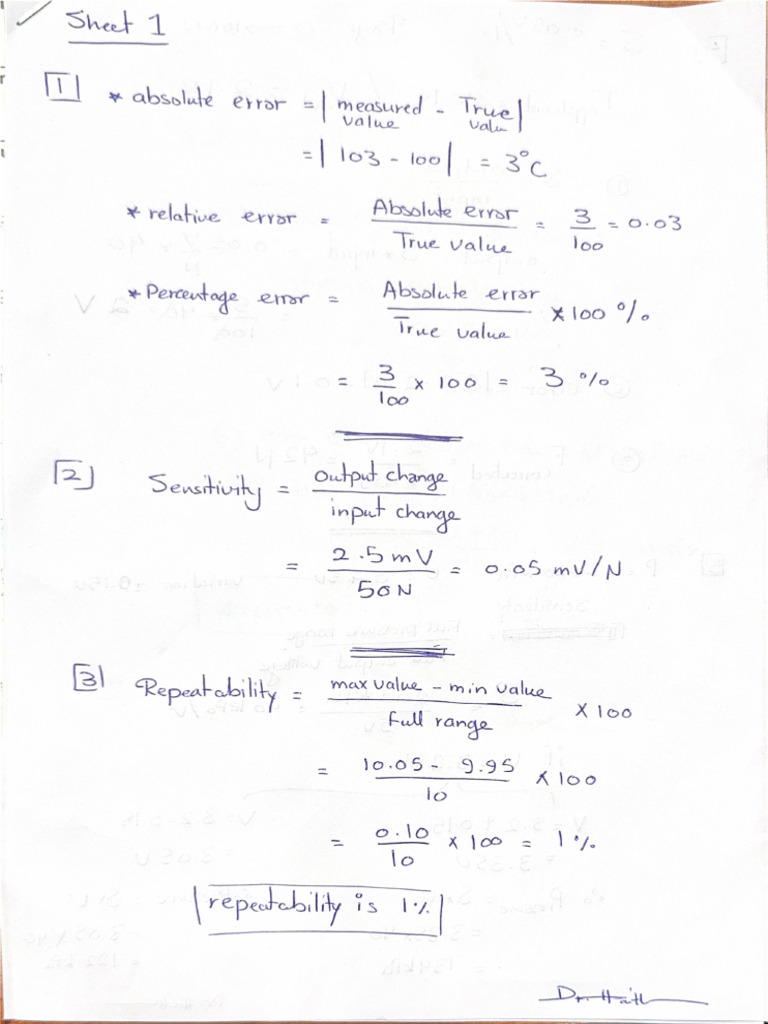 Sheet 1
1 * absolute error = | measured value - True value |
= | 103 - 100 | = 3°C
* relative error = Absolute error / True value = 3/100 = 0.03
* Percentage error = Absolute error / True value × 100 %
= 3/100 × 100 = 3 %
2 Sensitivity = output change / input change
= 2.5 mV / 50 N = 0.05 mV/N
3 Repeatability = max value - min value / full range × 100
= 10.05 - 9.95 / 10 × 100
= 0.10 / 10 × 100 = 1 %
repeatability is 1%